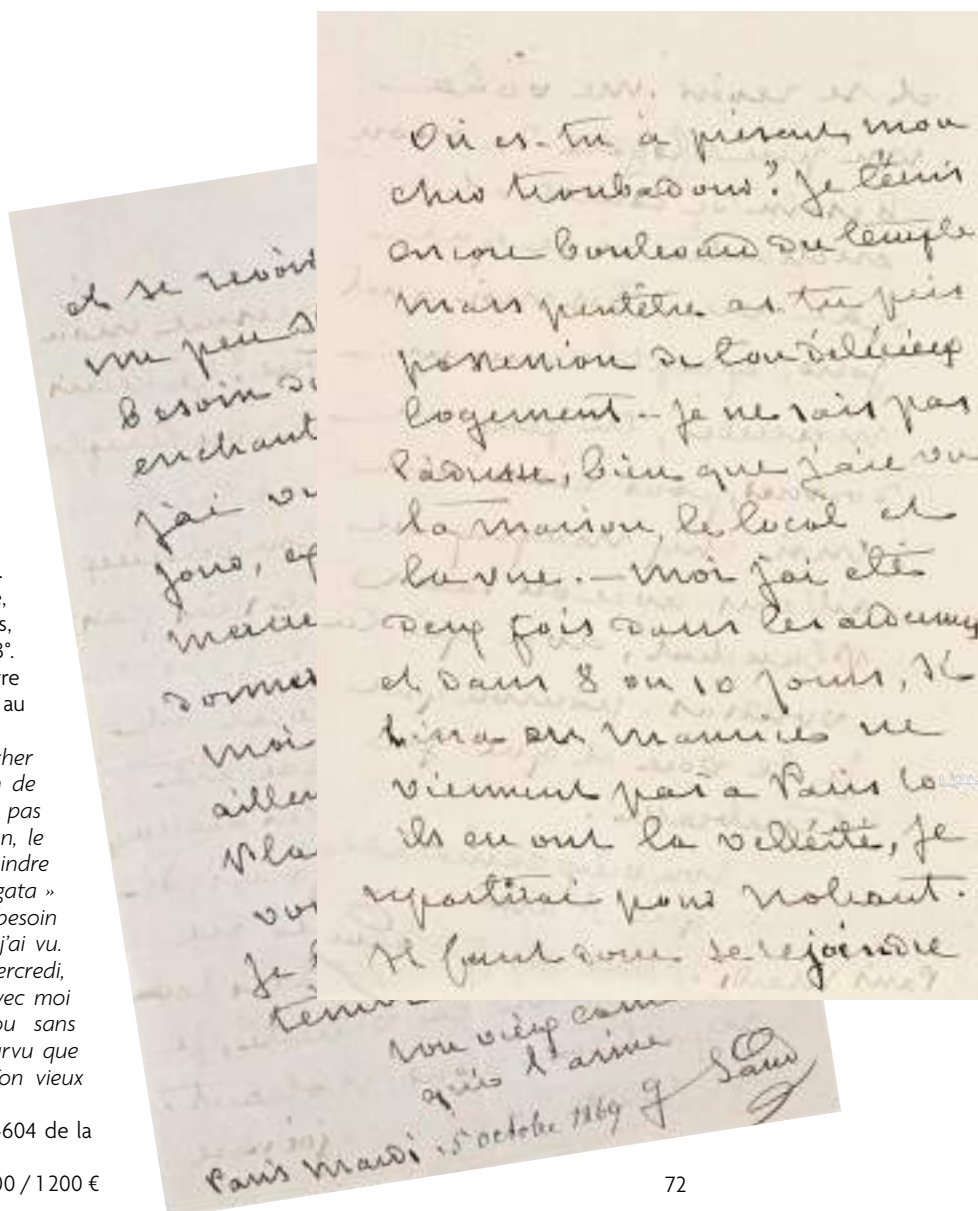 e,
s,
8°.
re
au
cher
de
pas
n, le
indre
gata »
besoin
j'ai vu.
ercredi,
vec moi
ou sans
rvu que
on vieux
604 de la
00 / 1200 €
et se revoir
un peu
besoin de
enchant
j'ai vu
jour,
donner
moi
ailleu
Je
ton vieux
qui t'aime
G Sand
Paris mardi 5 octobre 1869
Où es-tu à présent, mon
cher troubadour? Je t'écris
encore boulevard du temple
mais peutêtre as-tu pris
possession de ton délicieux
logement. - je ne sais pas
l'adresse, bien que j'aie vu
la maison, le local et
la vue. - moi j'ai été
deux fois dans les ardennes
et dans 8 ou 10 jours, si
Lina ou Maurice ne
viennent pas à Paris
ils en ont la velléité, je
repartirai pour Nohant.
Il faut donc se rejoindre
72